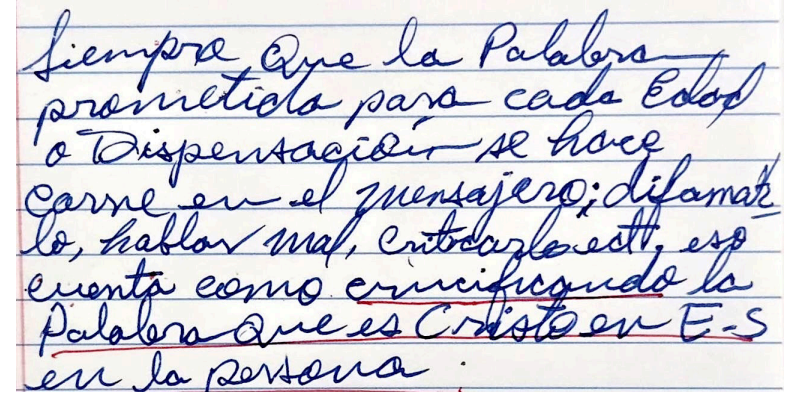 Siempre que la Palabra
prometida para cada Edad
o Dispensación se hace
carne en el mensajero; difamar-
lo, hablar mal, criticarlo ect. eso
cuenta como crucificando la
Palabra que es Cristo en E-S
en la persona.